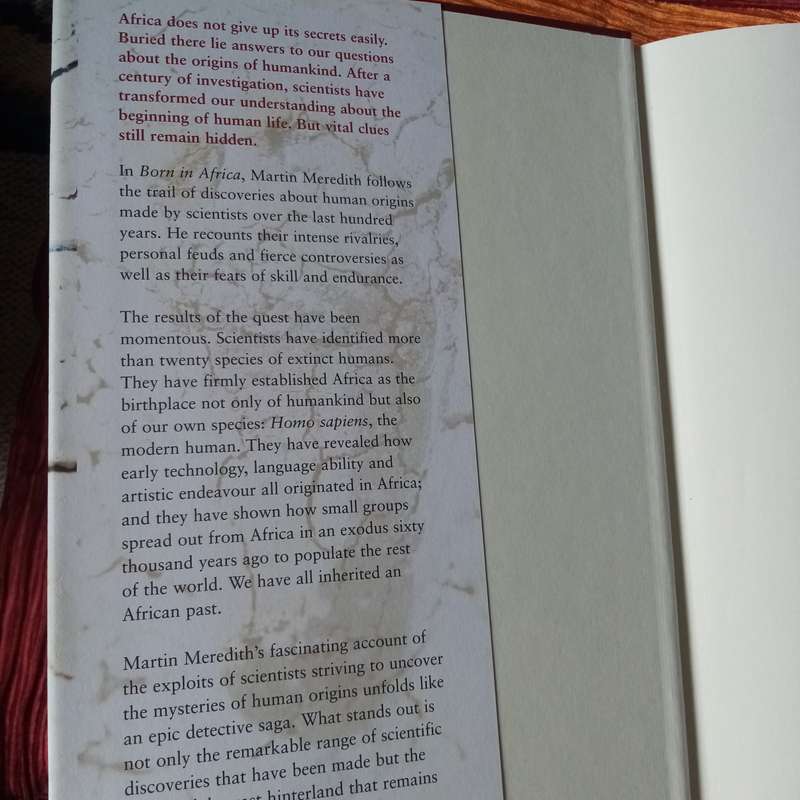 Africa does not give up its secrets easily.
Buried there lie answers to our questions
about the origins of humankind. After a
century of investigation, scientists have
transformed our understanding about the
beginning of human life. But vital clues
still remain hidden.
In Born in Africa, Martin Meredith follows
the trail of discoveries about human origins
made by scientists over the last hundred
years. He recounts their intense rivalries,
personal feuds and fierce controversies as
well as their feats of skill and endurance.
The results of the quest have been
momentous. Scientists have identified more
than twenty species of extinct humans.
They have firmly established Africa as the
birthplace not only of humankind but also
of our own species: Homo sapiens, the
modern human. They have revealed how
early technology, language ability and
artistic endeavour all originated in Africa;
and they have shown how small groups
spread out from Africa in an exodus sixty
thousand years ago to populate the rest
of the world. We have all inherited an
African past.
Martin Meredith's fascinating account of
the exploits of scientists striving to uncover
the mysteries of human origins unfolds like
an epic detective saga. What stands out is
not only the remarkable range of scientific
discoveries that have been made but the
hinterland that remains